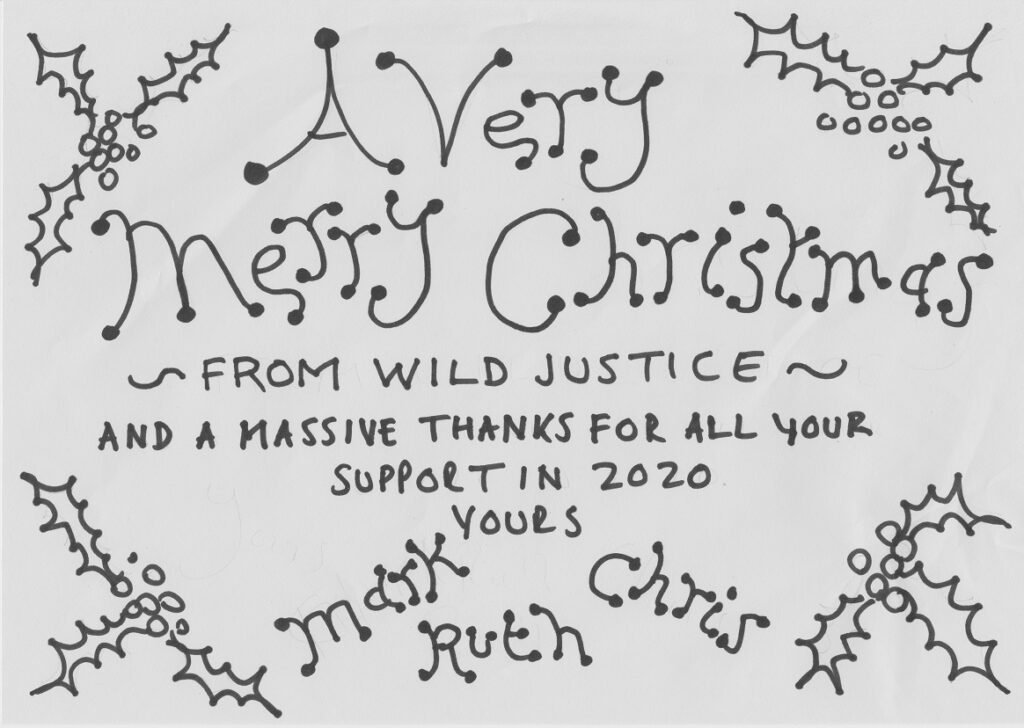 A Very
Merry Christmas
~ FROM WILD JUSTICE ~
AND A MASSIVE THANKS FOR ALL YOUR
SUPPORT IN 2020
YOURS
Mark Chris
Ruth